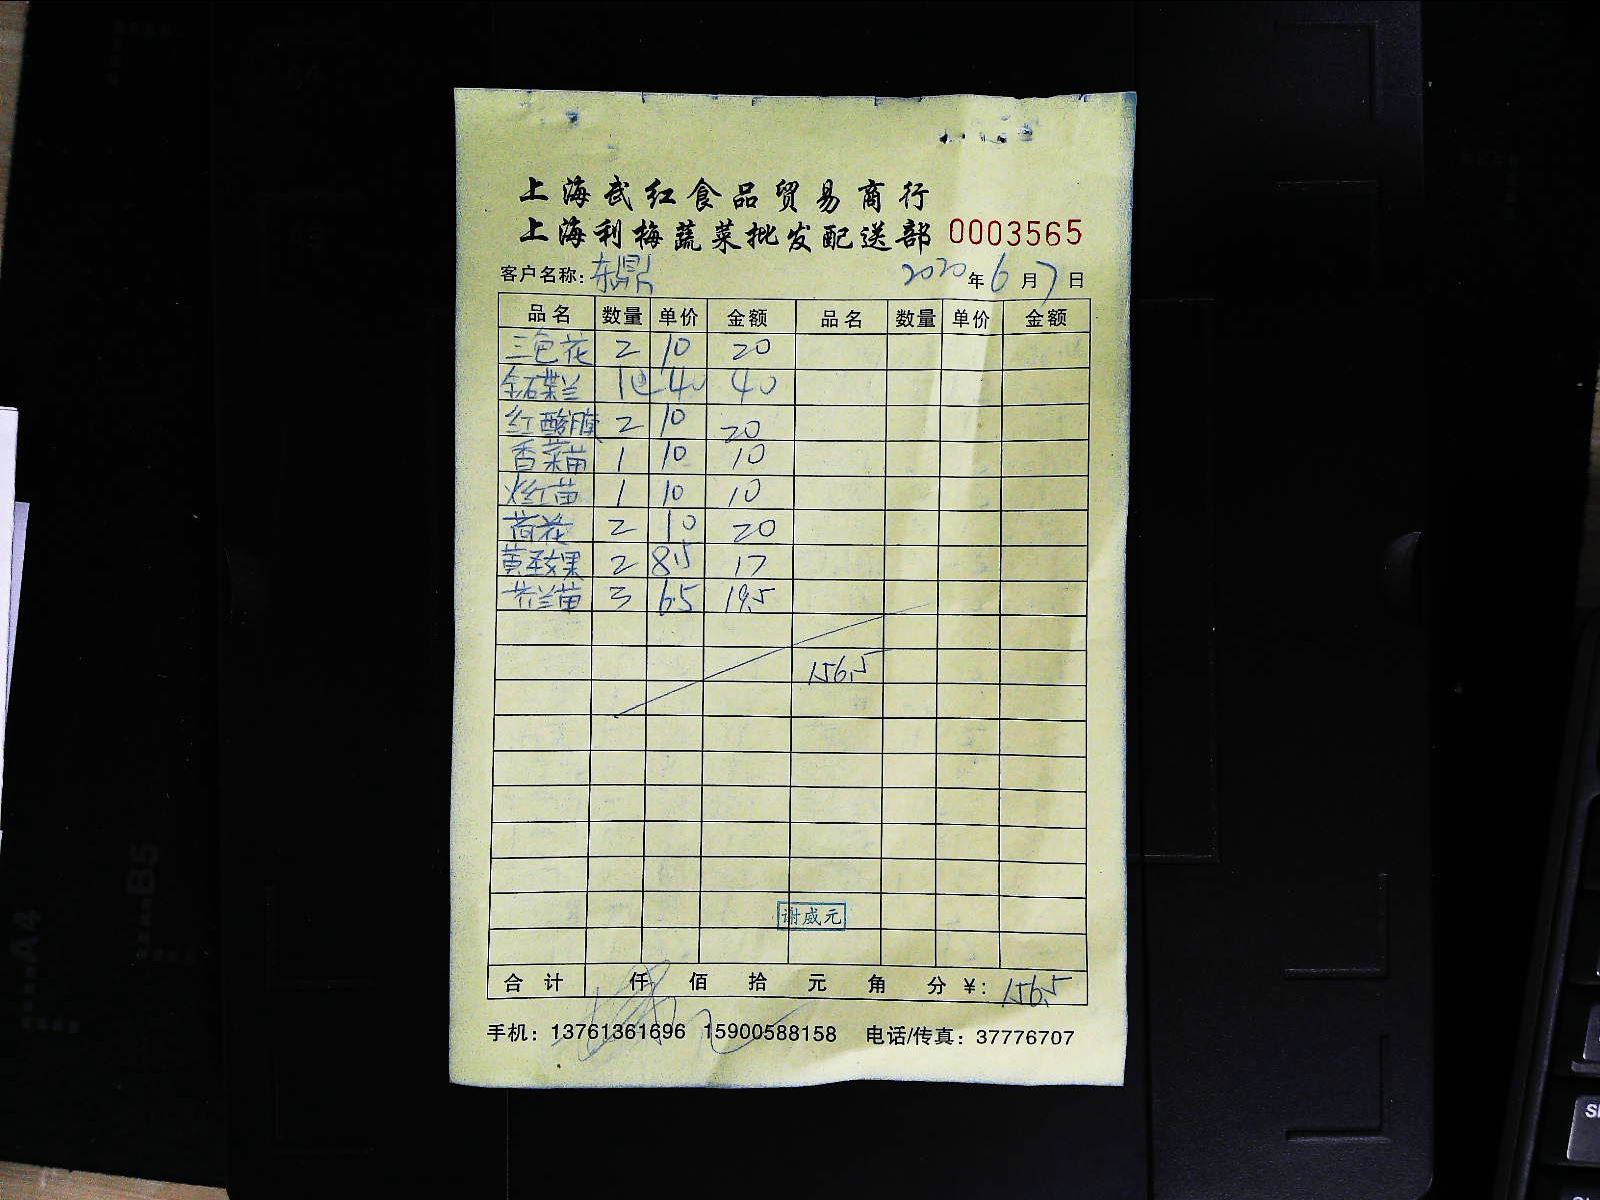 上海武红食品贸易商行
上海利梅蔬菜批发配送部 0003565
客户名称: 东鼎 2020年6月7日
品名 数量 单价 金额 品名 数量 单价 金额
三色花 2 10 20
40 40
红酸膜 2 10 20
香菜苗 1 10 10
红苗 1 10 10
荷花 2 10 20
2 8.5 17
苗 3 6.5 19.5
156.5
谢威元
合计 仟 佰 拾 元 角 分 ¥: 156.5
手机: 13761361696 15900588158 电话/传真: 37776707
A4
B5